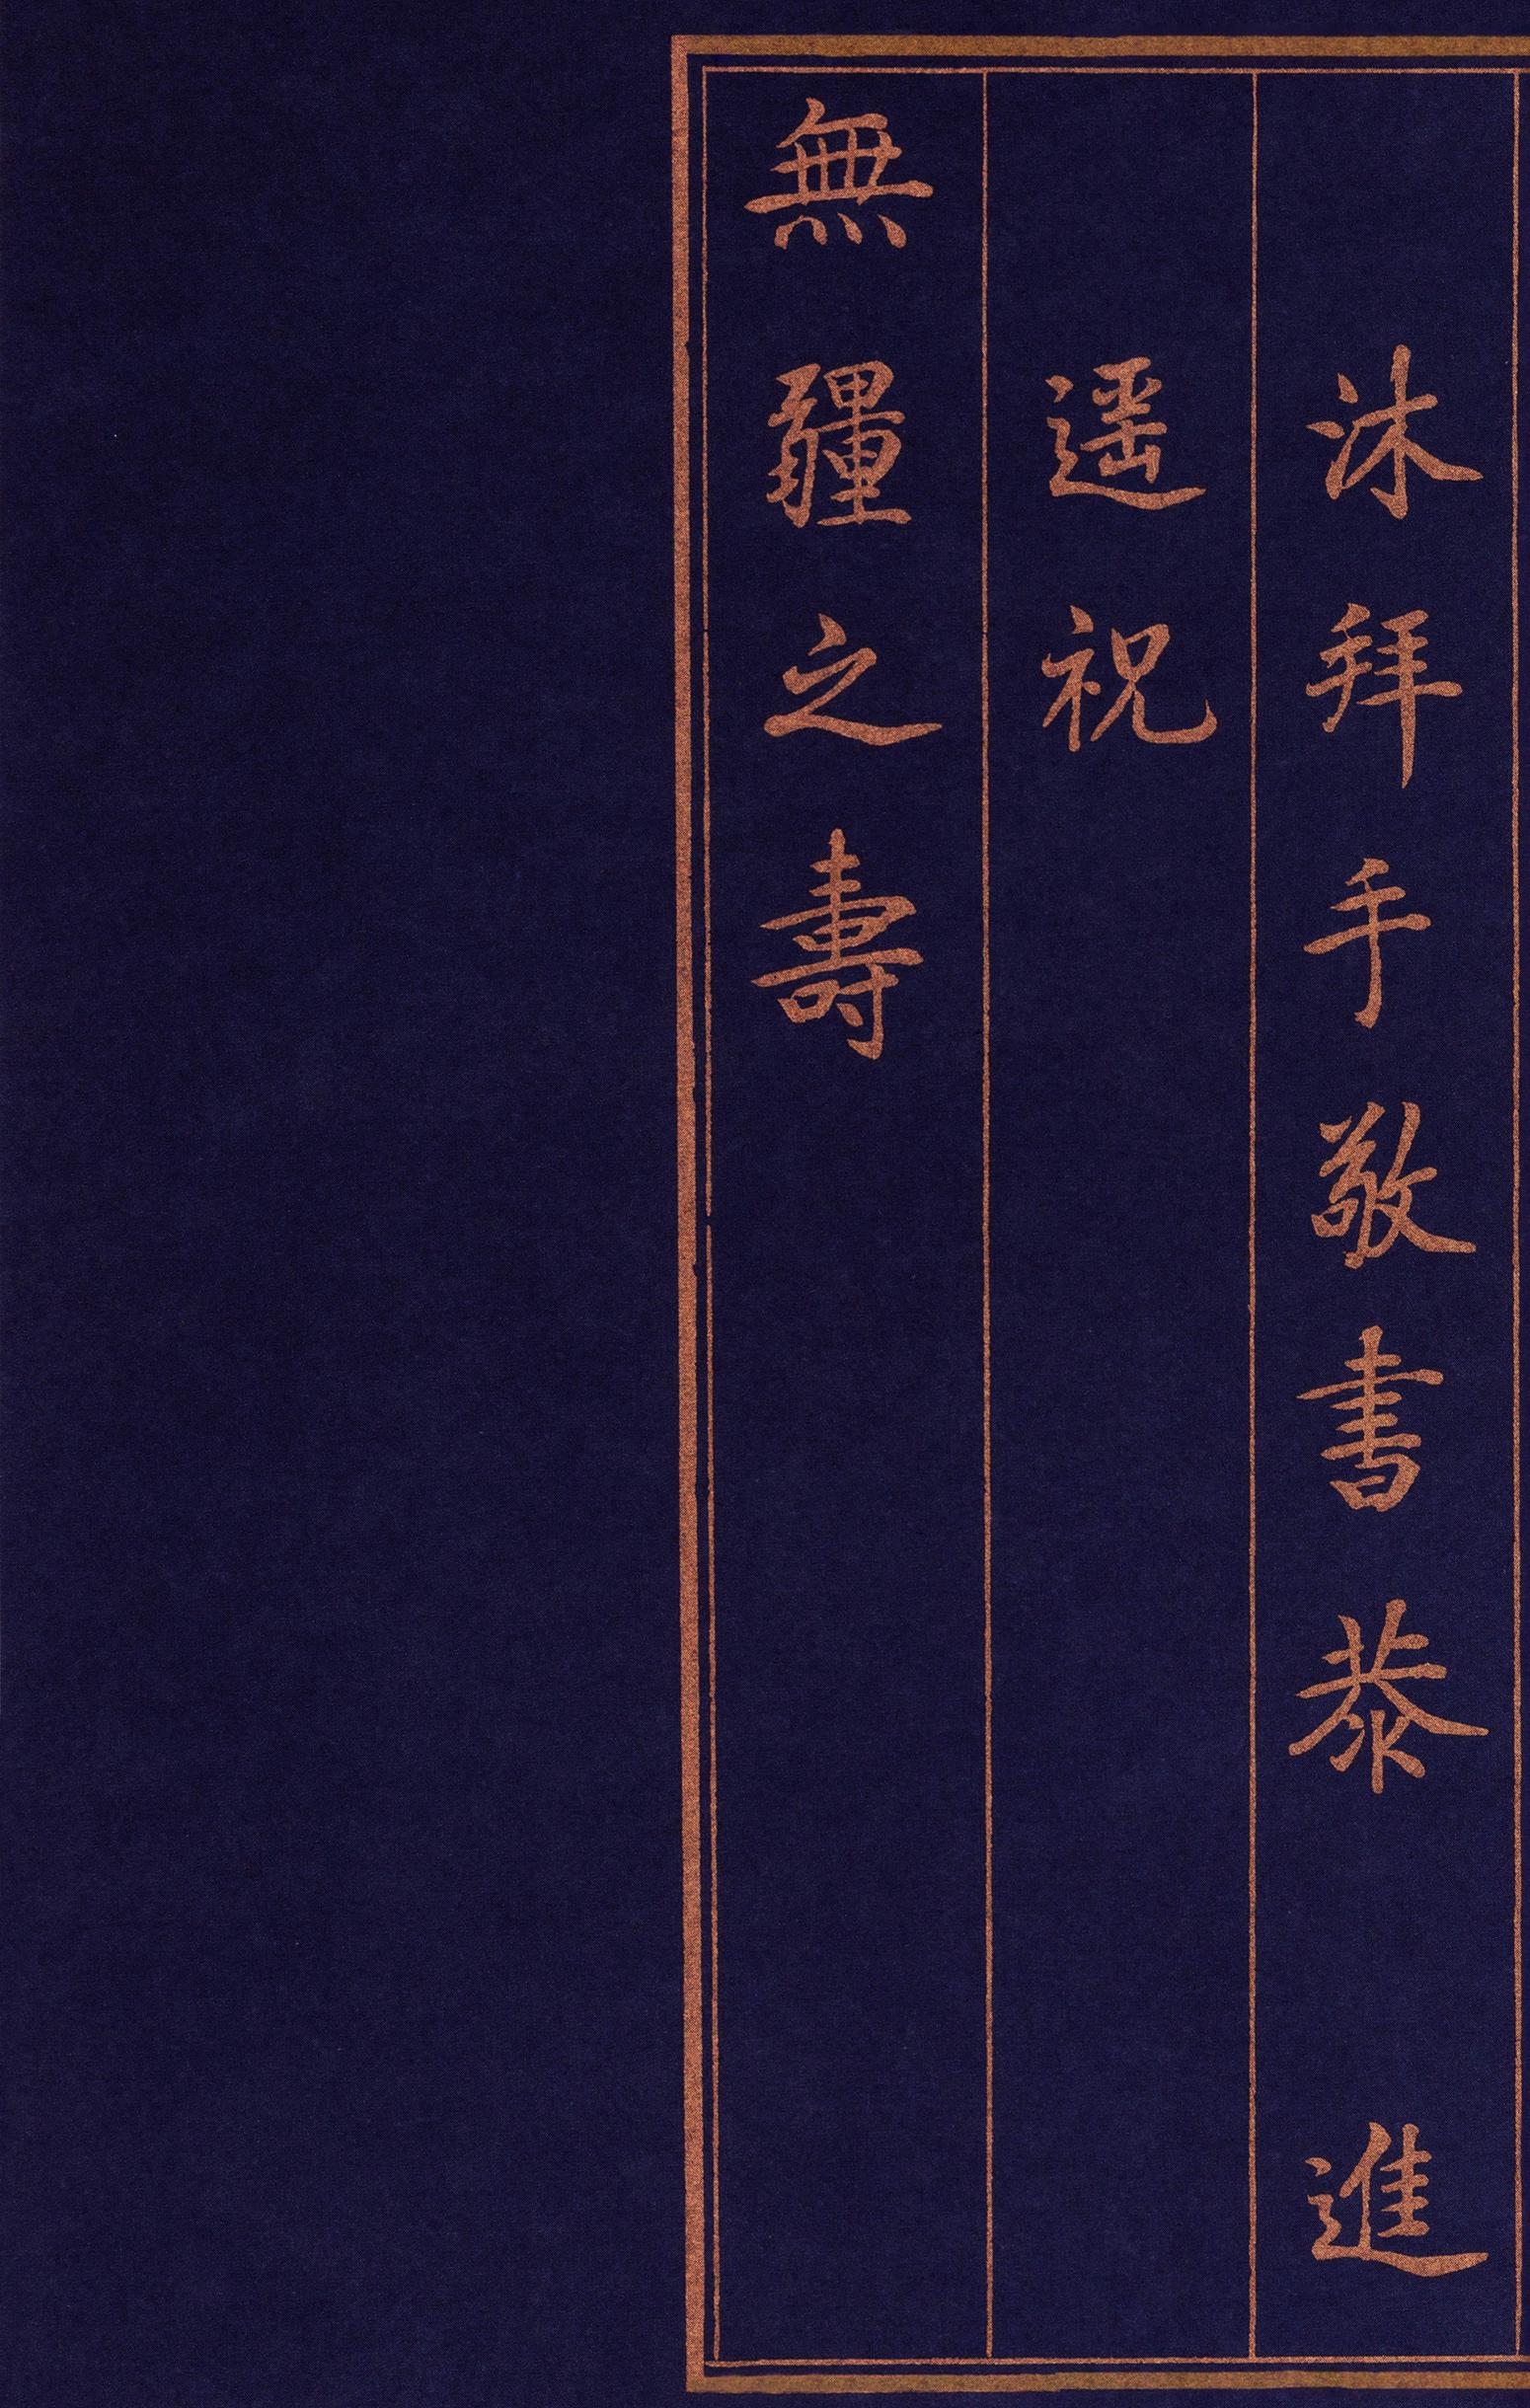 沐拜手敬書恭 進
遥祝
無疆之壽